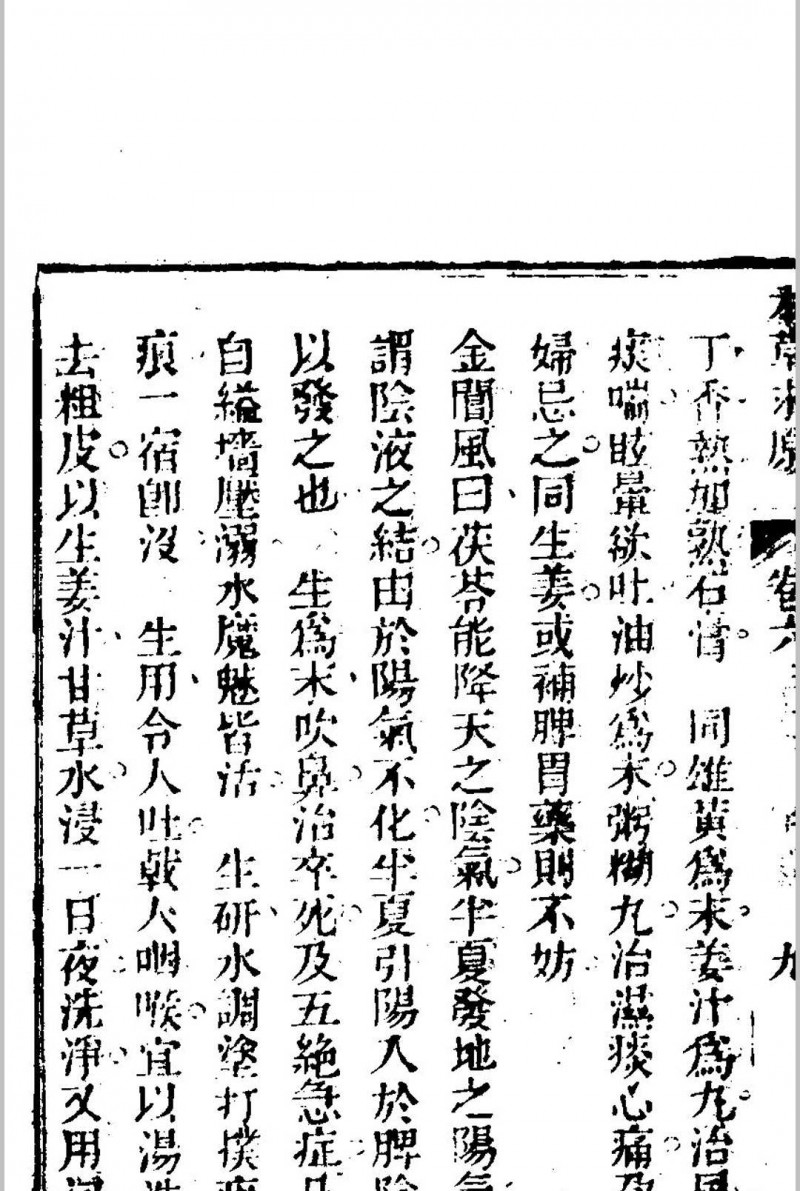 本草求原 卷六 九
丁香熱加熟石膏 同雄黃爲末姜汁爲丸治風
痰喘眩暈欲吐油炒爲末粥糊丸治濕痰心痛及
婦忌之同生姜或補脾胃藥則不妨
金閶風曰茯苓能降天之陰氣半夏發地之陽氣
謂陰液之結由於陽氣不化半夏引陽入於脾陰
以發之也 生爲末吹鼻治卒死及五絶急症凡
自縊墻壓溺水魔魅皆活 生研水調塗打撲
痕一宿卽沒 生用令人吐戟人咽喉宜以湯洗
去粗皮以生姜汁甘草水浸一日夜洗淨又用